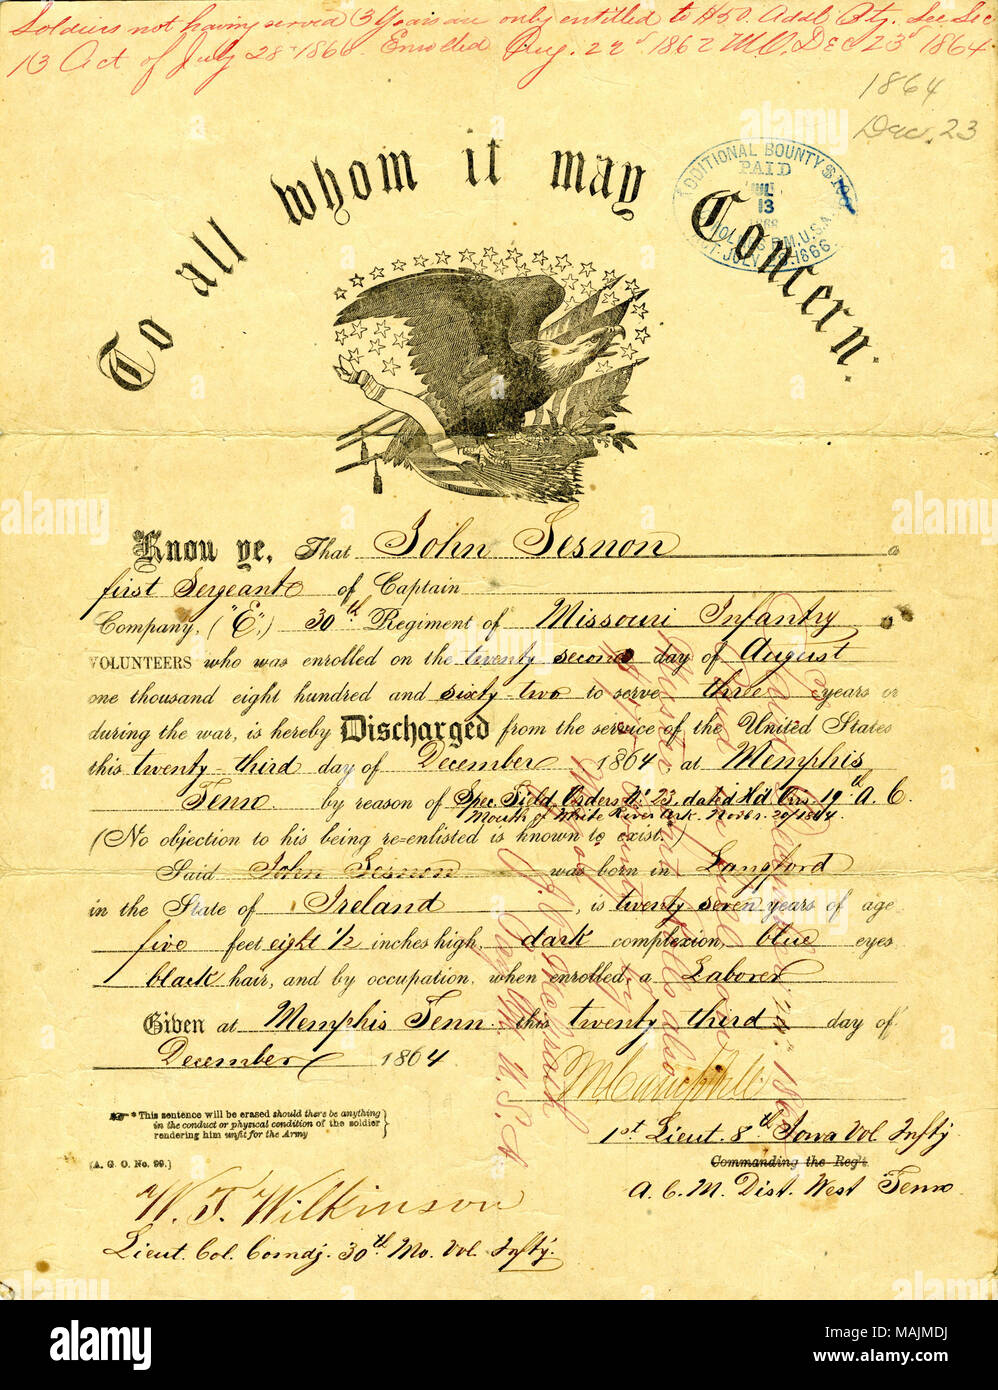 Soldiers not having served (3 Years are only entitled to $50. Addl Bty. See Sec
13 Act of July 28th 1866. Enrolled Aug. 22d 1862 M.O. Dec 23d 1864
1864
Dec. 23
To all whom it may Concern:
ADDITIONAL BOUNTY $
PAID
13
P.M.U.S.A.
ACT. JULY 28.1866
Know ye, That John Sesnon a
first Sergeant of Captain
Company, ("E",) 30th Regiment of Missouri Infantry
VOLUNTEERS who was enrolled on the twenty second day of August
one thousand eight hundred and sixty-two to serve three years or
during the war, is hereby Discharged from the service of the United States
this twenty-third day of December, 1864, at Memphis
Tenn. by reason of Spec. Field Orders No 23, dated Hd Qrs. 19th A. C.
Mouth of White River Ark. Novbr. 20/1864.
(No objection to his being re-enlisted is known to exist.)
Said John Sesnon was born in Langford
in the State of Ireland, is twenty seven years of age
five feet eight 1/2 inches high, dark complexion, blue eyes
black hair, and by occupation, when enrolled, a Laborer
Given at Memphis Tenn. this twenty third day of
December 1864
* This sentence will be erased should there be anything
in the conduct or physical condition of the soldier
rendering him unfit for the Army
1st Lieut. 8th Iowa Vol Infty
Commanding the Reg't
(A. G. O. No. 99.)
A. C. M. Dist. West Tenn.
W. T. Wilkinson
Lieut. Col. Comdg. 30th Mo. Vol. Infty.
alamy
Image ID: MAJMDJ
www.alamy.com